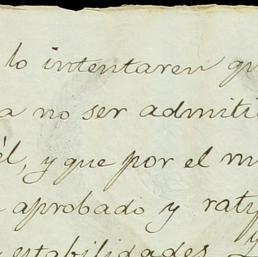 lo intentaren qu
a no ser admiti
él, y que por el m
aprobado y raty
estabilidades y